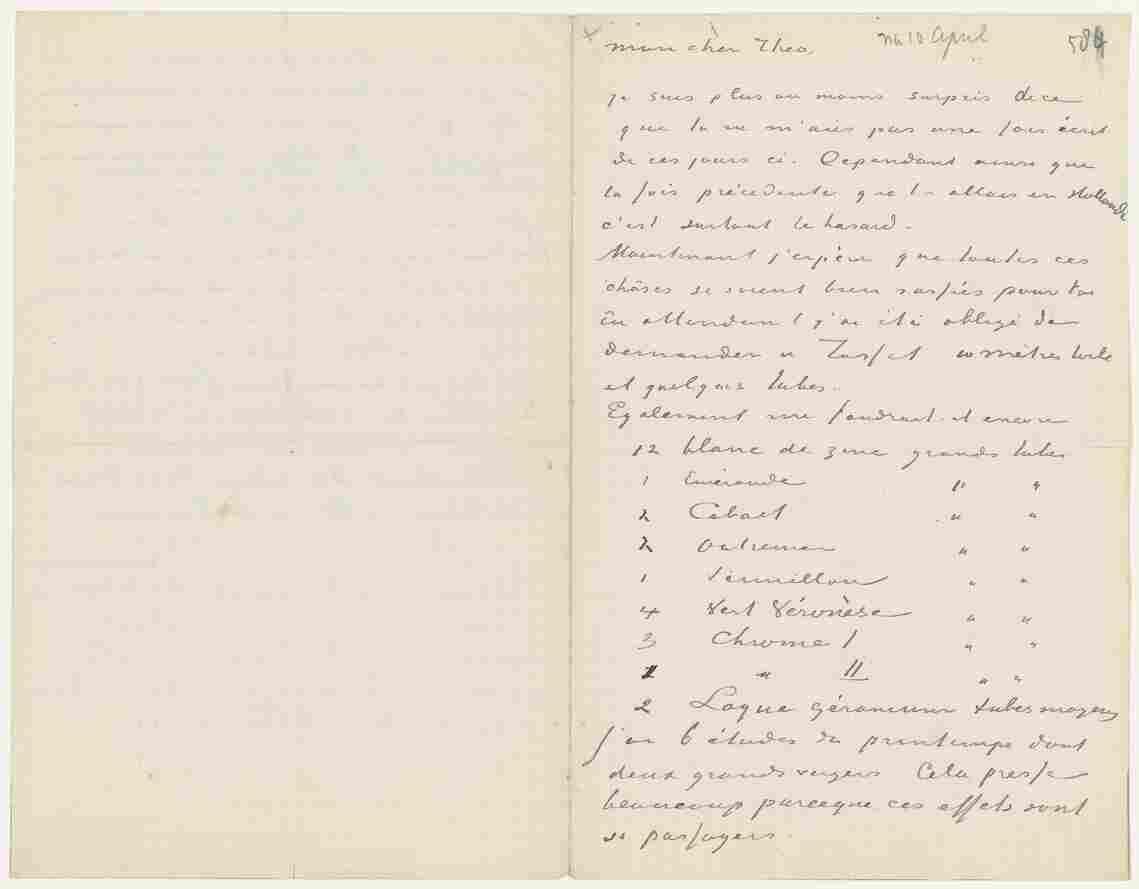 mon cher Theo
na 10 April
584
je suis plus ou moins surpris de ce
que tu ne m'aies pas une fois écrit
de ces jours ci. Cependant ainsi que
la fois précédente que tu allais en Hollande
c'est surtout le hasard.
Maintenant j'espère que toutes ces
chôses se soient bien passées pour toi
En attendant j'ai été obligé de
demander à Tasset 10 mètres toile
et quelques tubes.
Egalement me faudrait-il encore
12 blanc de zinc grands tubes
1 Emeraude " "
2 Cobalt " "
2 outremer " "
1 Vermillon " "
4 Vert Véronèse " "
3 Chrome I " "
1 " II " "
2 Laque géranium tubes moyens
j'ai 6 études de printemps dont
deux grands vergers Cela presse
beaucoup parceque ces effets sont
si passagers.